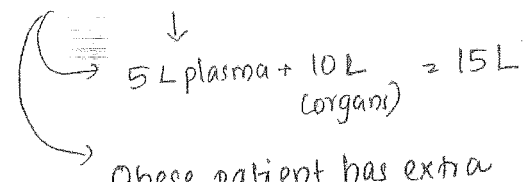 5 L plasma + 10 L = 15 L
(organs)
Obese patient has extra